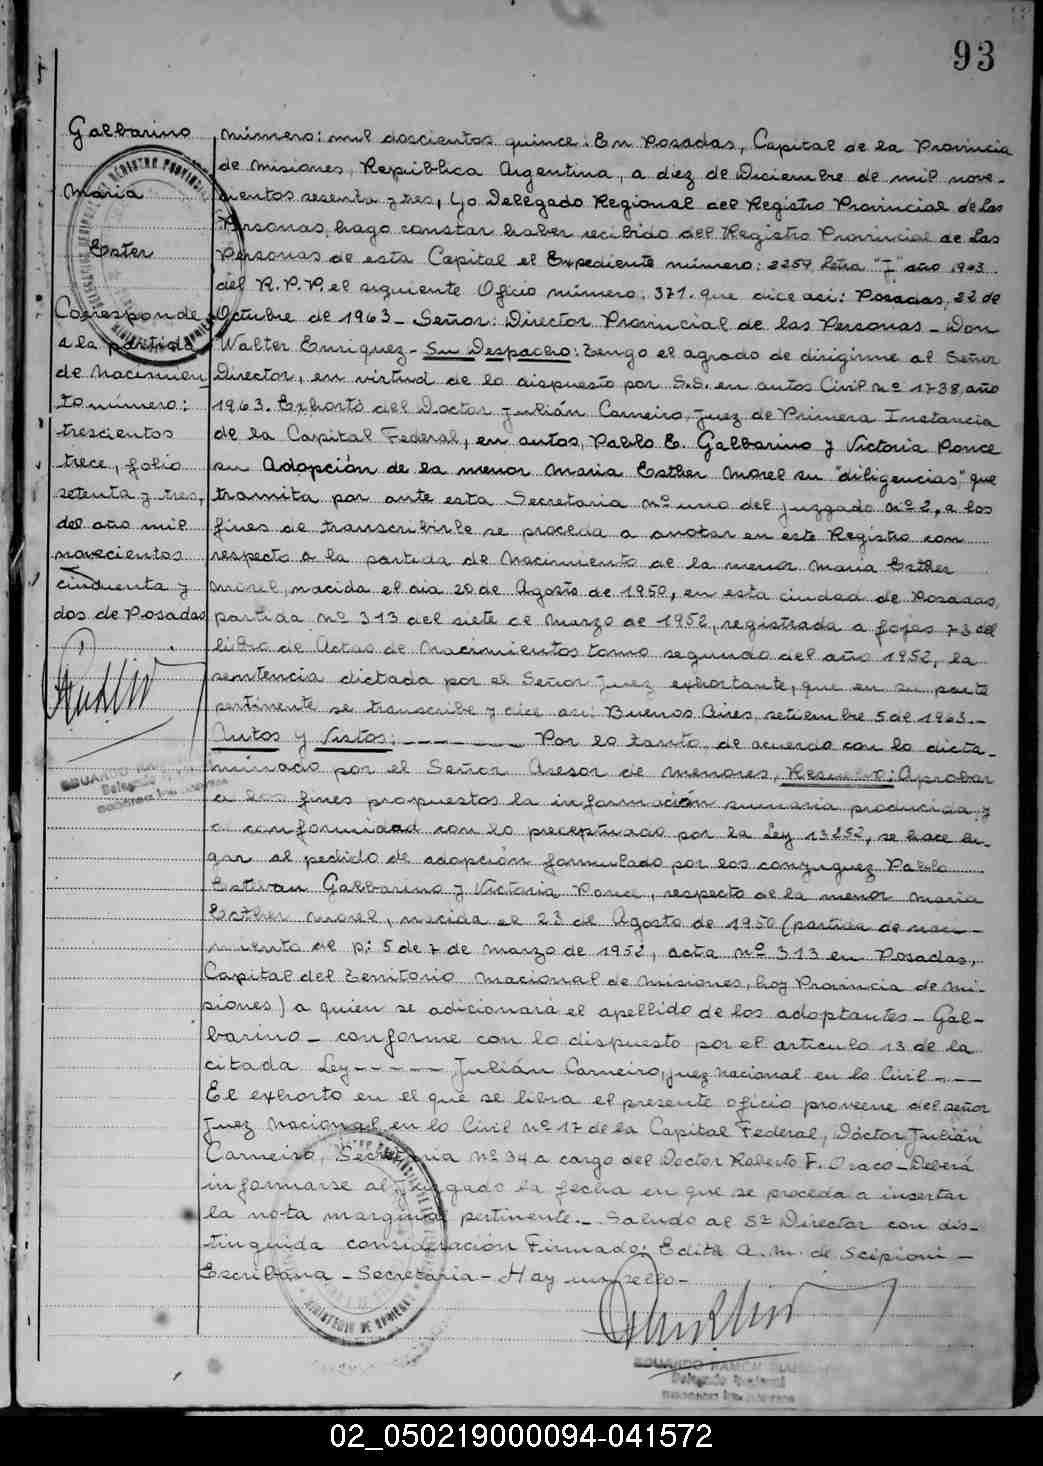 93
Galbarino
Maria
Ester
Corresponde
a la partida
de Nacimien
to número:
trescientos
trece, folio
setenta y tres,
del año mil
novecientos
cincuenta y
dos de Posadas
Número: mil doscientos quince: En Posadas, Capital de la Provincia
de Misiones, República Argentina, a diez de Diciembre de mil nove-
cientos sesenta y tres, Yo Delegado Regional del Registro Provincial de las
Personas, hago constar haber recibido del Registro Provincial de las
Personas de esta Capital el Expediente número: 2259 letra "I" año 1963.
del R.P.P. el siguiente Oficio número: 371. que dice asi: Posadas, 22 de
Octubre de 1963 - Señor: Director Provincial de las Personas - Don
Walter Enriquez - Su Despacho: Tengo el agrado de dirigirme al Señor
Director, en virtud de lo dispuesto por S.S. en autos Civil Nº 1738, año
1963. Exhorto del Doctor Julián Carneiro, Juez de Primera Instancia
de la Capital Federal, en autos, Pablo E. Galbarino y Victoria Ponce
su Adopción de la menor Maria Esther Morel su "diligencias," que
tramita por ante esta Secretaria Nº uno del Juzgado Nº 2, a los
fines de transcribirle se proceda a anotar en este Registro con
respecto a la partida de Nacimiento de la menor Maria Esther
Morel, nacida el dia 20 de Agosto de 1950, en esta ciudad de Posadas,
partida Nº 313 del siete de Marzo de 1952, registrada a fojas 73 del
libro de Actas de Nacimientos tomo segundo del año 1952, la
sentencia dictada por el Señor Juez exhortante, que en su parte
pertinente se transcribe y dice asi: Buenos Aires, setiembre 5 de 1963.-
Autos y Vistos: - - - - - - Por lo tanto, de acuerdo con lo dicta-
minado por el Señor Asesor de Menores, Resuelvo: Aprobar
a los fines propuestos la información sumaria producida y
de conformidad con lo preceptuado por la Ley 13252, se hace lu-
gar al pedido de adopción formulado por los conyuguez Pablo
Esteban Galbarino y Victoria Ponce, respecto de la menor Maria
Esther Morel, nacida el 23 de Agosto de 1950 (partida de naci-
miento de p: 5 de 7 de Marzo de 1952, acta Nº 313 en Posadas,
Capital del Territorio Nacional de Misiones, hoy Provincia de Mi-
siones) a quien se adicionará el apellido de los adoptantes - Gal-
barino - conforme con lo dispuesto por el articulo 13 de la
citada Ley - - - - - Julián Carneiro, Juez Nacional en lo Civil - - -
El exhorto en el que se libra el presente oficio proviene del señor
Juez Nacional en lo Civil Nº 17 de la Capital Federal, Dóctor Julián
Carneiro, Secretaria Nº 34 a cargo del Doctor Roberto F. Oraco - Deberá
informarse al Juzgado la fecha en que se proceda a insertar
la nota marginal pertinente. - Saludo al Sr Director con dis-
tinguida consideración Firmado: Edith A. M. de Scipioni -
Escribana - Secretaria - Hay un sello -
EDUARDO RAMON
Delegado
EDUARDO RAMON
Delegado
MINISTERIO DE GOBIERNO
02_050219000094-041572